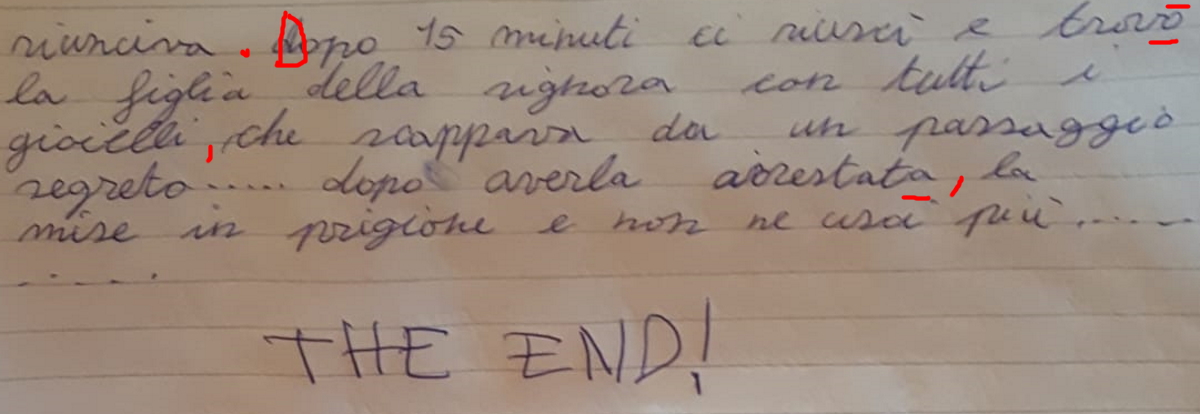 riusciva. Dopo 15 minuti ci riuscì e trovò
la figlia della signora con tutti i
gioielli, che scappava da un passaggio
segreto..... dopo averla arrestata, la
mise in prigione e non ne uscì più.....
.....
THE END!